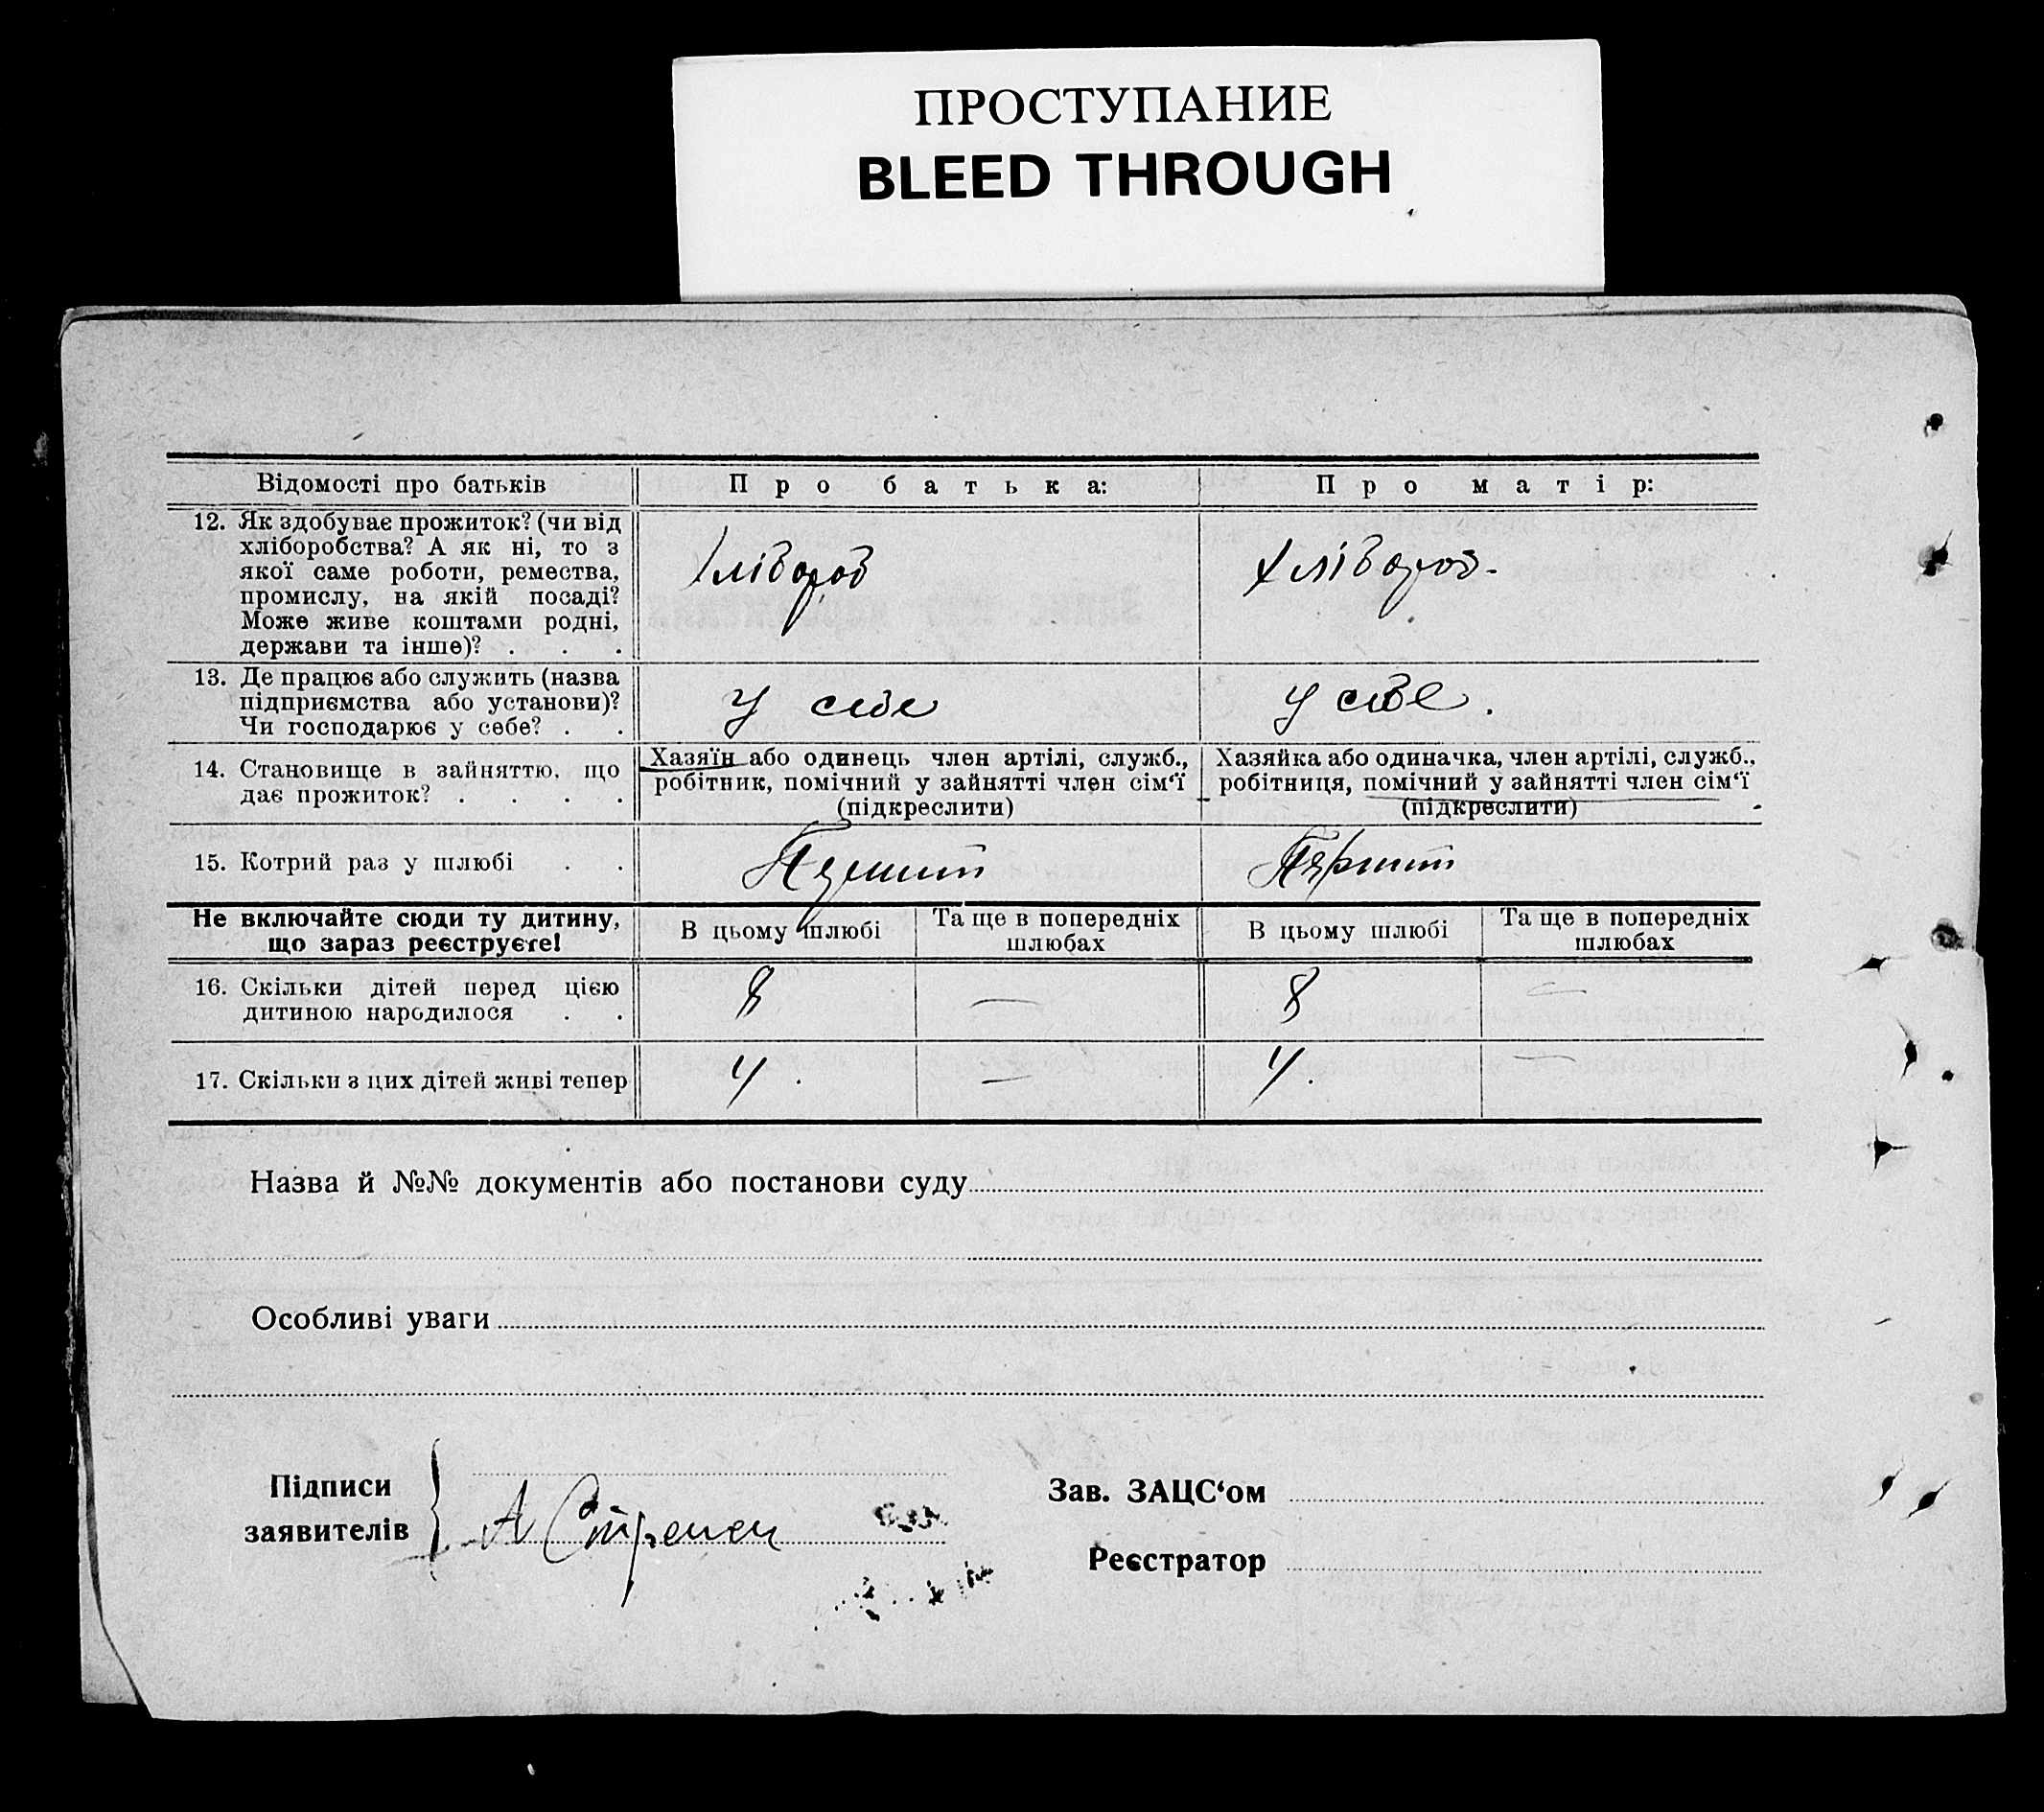 ПРОСТУПАНИЕ
BLEED THROUGH
Відомості про батьків
Про батька:
Про матір:
12. Як здобуває прожиток? (чи від
хліборобства? А як ні, то з
якої саме роботи, ремества,
промислу, на якій посаді?
Може живе коштами родні,
держави та інше)? . . .
Хлібороб
Хлібороб-
13. Де працює або служить (назва
підприємства або установи)?
Чи господарює у себе? . .
У себе
У себе.
14. Становище в зайняттю, що
дає прожиток? . . . .
Хазяїн або одинець член артілі, служб.,
робітник, помічний у зайнятті член сім‘ї
(підкреслити)
Хазяйка або одиначка, член артілі, служб.,
робітниця, помічний у зайнятті член сім‘ї
(підкреслити)
15. Котрий раз у шлюбі . .
Не включайте сюди ту дитину,
що зараз реєструєте!
В цьому шлюбі
Та ще в попередніх
шлюбах
В цьому шлюбі
Та ще в попередніх
шлюбах
16. Скільки дітей перед цією
дитиною народилося . .
8
—
8
—
17. Скільки з цих дітей живі тепер
4.
—
4.
—
Назва й №№ документів або постанови суду
Особливі уваги
Підписи
заявителів
А
Зав. ЗАЦС‘ом
Реєстратор